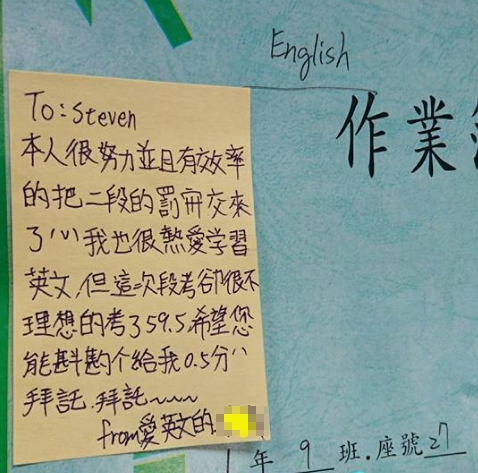 English
作業
To: Steven
本人很努力並且有效率
的把二段的罰冊交來
了!!我也很熱愛学習
英文,但這次段考卻很不
理想的考了59.5,希望您
能斟酌个給我0.5分!!
拜託.拜託~~~
from愛英文的
年 9 班.座號 27